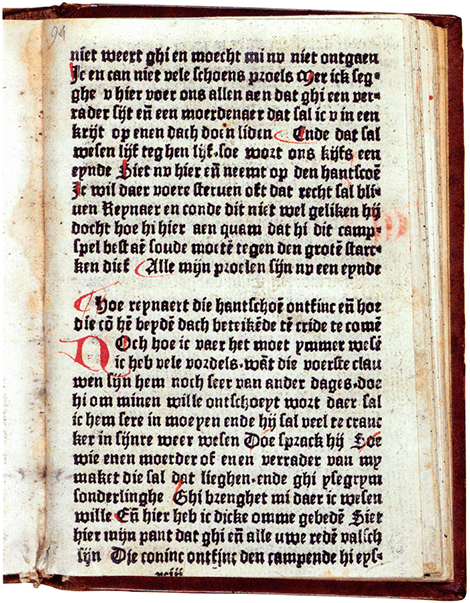 94
niet weert ghi en moecht mi nv niet ontgaen
Jc en can niet vele schoens proels Mer ick seg-
ghe v hier voer ons allen aen dat ghi een ver-
rader sijt eñ een moerdenaer dat sal ic v in een
krijt op enen dach doen liden Ende dat sal
wesen lijf teghen lijf. soe wort ons kijfs een
eynde Siet nv hier eñ neemt op den hantscoē
Je wil daer voere steruen oft dat recht sal bli-
uen Reynaer en conde dit niet wel geliken hij
docht hoe hi hier aen quam dat hi dit camp-
spel bestaē soude moetē tegen den grotē starc-
ken dief Alle mijn proelen sijn nv een eynde
Hoe reynaert die hantschoē ontfinc eñ hoe
die cō hē beydē dach beteikēde tē cride te comē
Doch hoe ic vaer het moet ymmer wesē
ic heb vele vordels. wāt die voerste clau
wen sijn hem noch seer van ander dages. doe
hi om minen wille ontschoeyt wort daer sal
ic hem sere in moeyen ende hij sal veel te cranc
ker in sijnre weer wesen Doe sprack hij Soe
wie enen moerder of enen verrader van my
maket die sal dat lieghen. ende ghi ysegrym
sonderlinghe Ghi brenghet mi daer ic wesen
wille Eñ hier heb ic dicke omme gebedē Siet
hier mijn pant dat ghi eñ alle uwe redē valsch
sijn Die coninc ontfinc den campende hi eys-